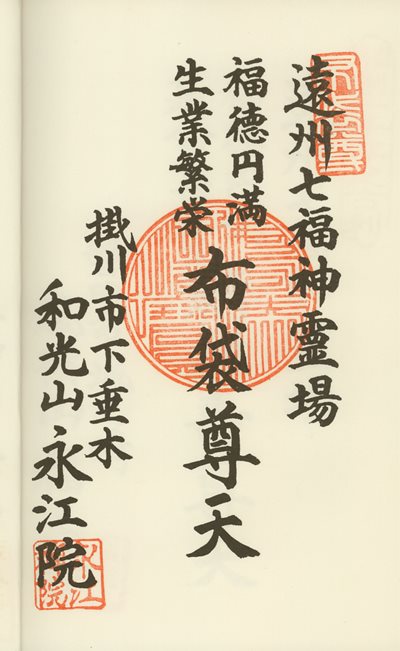 遠州七福神霊場
福徳円満
生業繁栄
布袋尊天
掛川市下垂木
和光山永江院
永江院